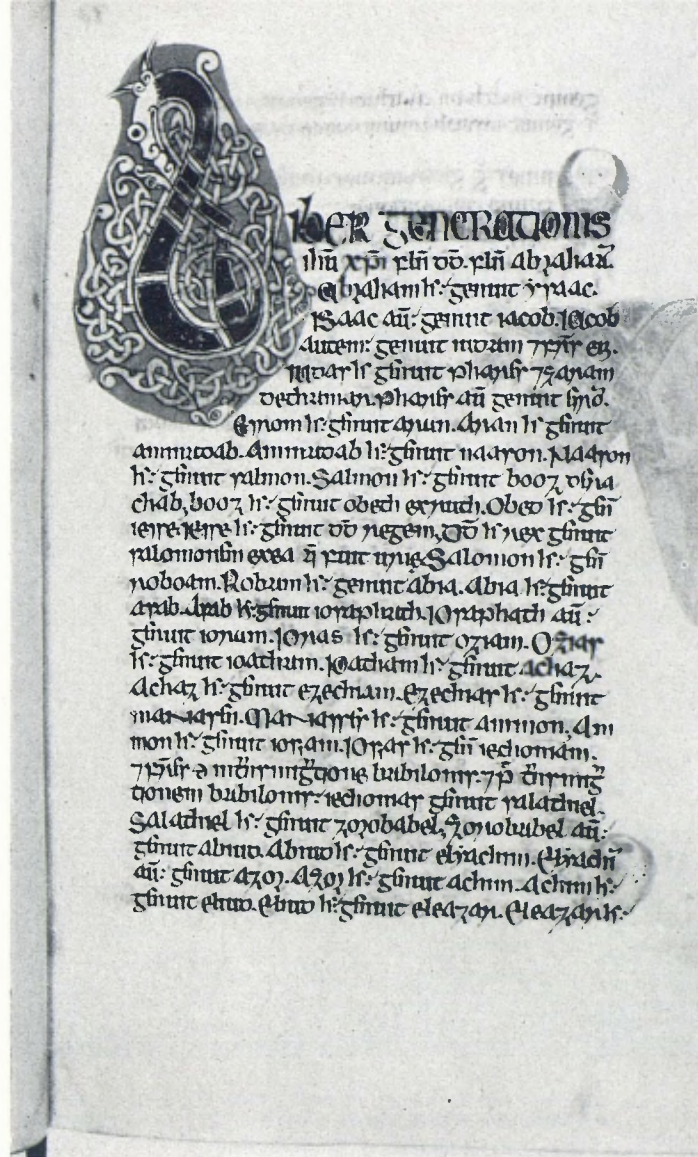 Liber generationis
ihū xp̄i filii dō. filii abraħa.
Abraham ħ: genuit ysaac.
Isaac aū: genuit iacob. Iacob
autem: genuit iudam ⁊ fr̄s eɀ.
Iudas ħ: genuit phares ⁊ zaram
de thamar. Phares aū genuit
Esrom ħ: genuit aram. Aram ħ: genuit
aminadab. Aminadab ħ: genuit naason. Naason
ħ: genuit salmon. Salmon ħ: genuit booz
chab. booz ħ: genuit obeth exruth. Obed ħ:
iesse. iesse ħ: genuit dd̄ regem. Dd̄ ħ rex genuit
salomonem exea q̄ fuit urie. Salomon ħ:
roboam. Roboam ħ: genuit abia. Abia ħ: genuit
asab. Asab ħ: genuit iosaphath. Iosaphath aū:
genuit ioram. Ioras ħ: genuit oziam. Ozias
ħ: genuit ioatham. Ioatham ħ: genuit achaz.
Achaz ħ: genuit ezechiam. Ezechias ħ: genuit
manassen. Manasses ħ: genuit ammon. Am
mon ħ: genuit iosiam. Iosias ħ: iechoniam.
babilonis.
tionem babilonis: iechonias genuit salathiel.
Salathiel ħ: genuit zorobabel. Zorobabel aū:
genuit abiud. Abiud ħ: genuit eliachim. Eliachī
aū: genuit azor. Azor ħ: genuit achim. Achim ħ:
genuit eliud. Eliud ħ: genuit eleazar. Eleazar ħ: